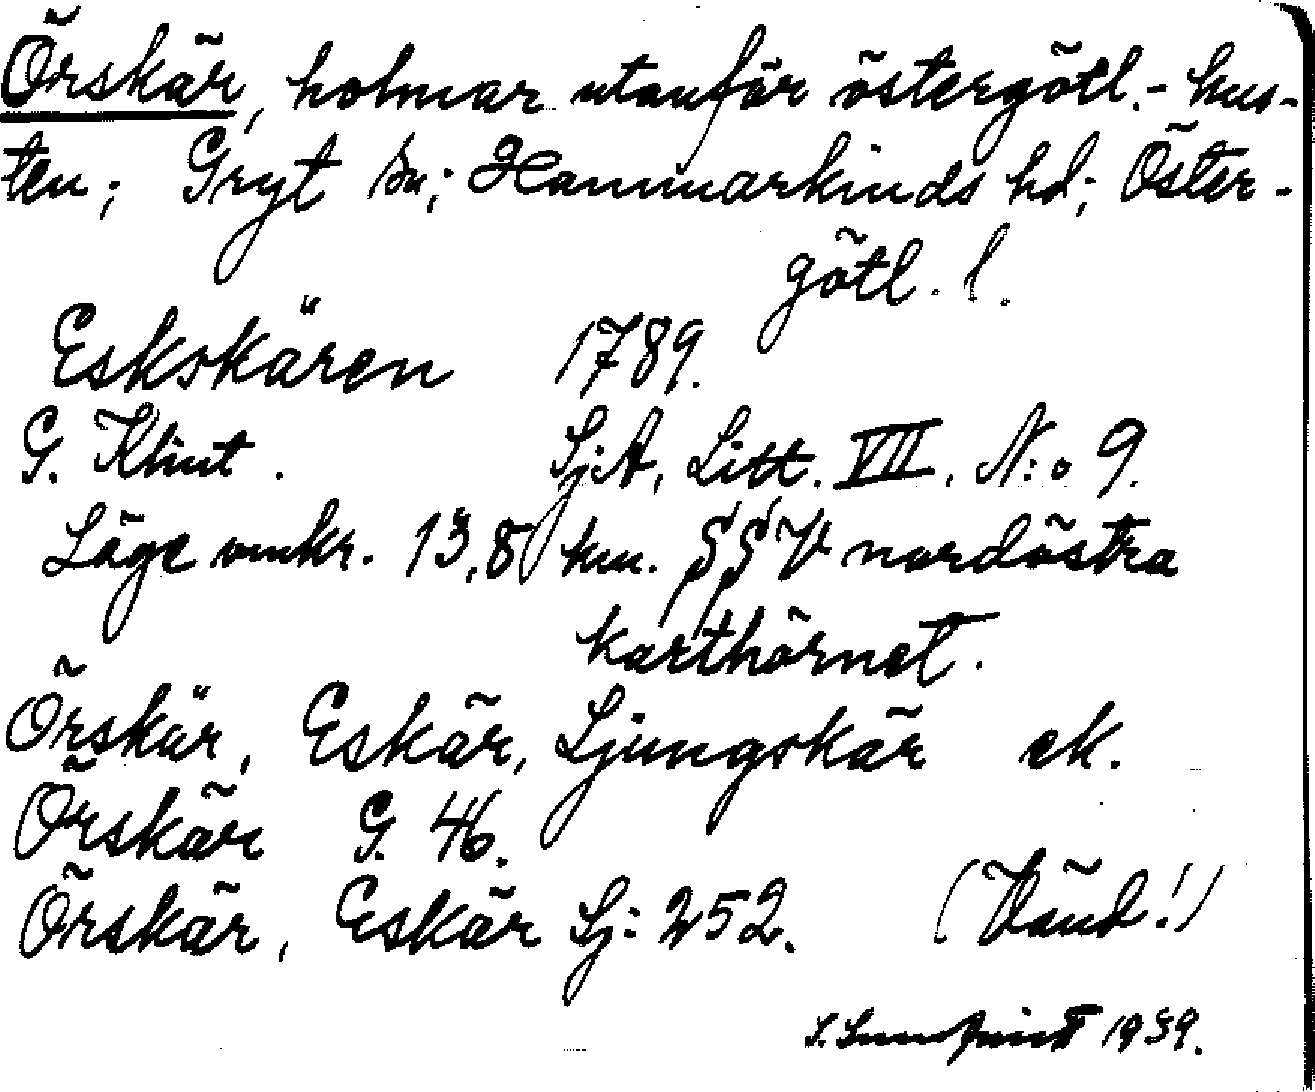 Örskär, holmar utanför östergötl.- kus-
ten; Gryt sn; Hammarkinds hd; Öster-
götl. l.
Eskskären 1789.
G. Klint. Sj:A, Litt. VII, N:o 9.
Läge omkr. 13,8 km. SSV nordöstra
karthörnet.
Örskär, Eskär, Ljungskär ek.
Örskär G. 46.
Örskär, Eskär Sj: 252. (Vänd!)
1939.